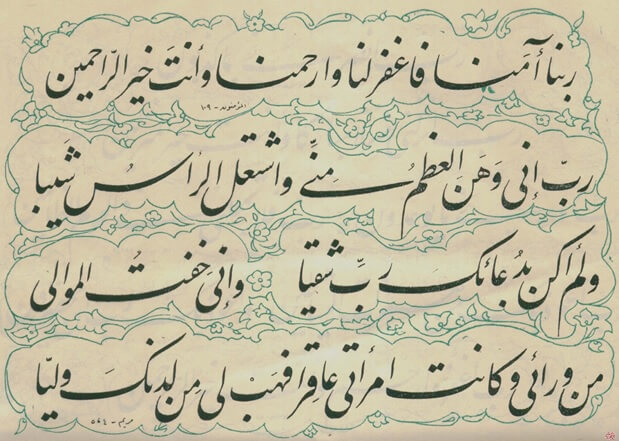 ربنا آمنا فاغفر لنا وارحمنا وأنت خير الراحمين
المؤمنون - ١٠٩
ربّ إني وَهَنَ العظمُ مِنّي واشتعل الرأس شَيبا
ولم أكن بدُعائك ربِّ شقيا وإني خفتُ الموالي
من ورائي وكانت امرأتي عاقرا فهَبْ لي مِن لدنك وليّا
مريم - ٤،٥